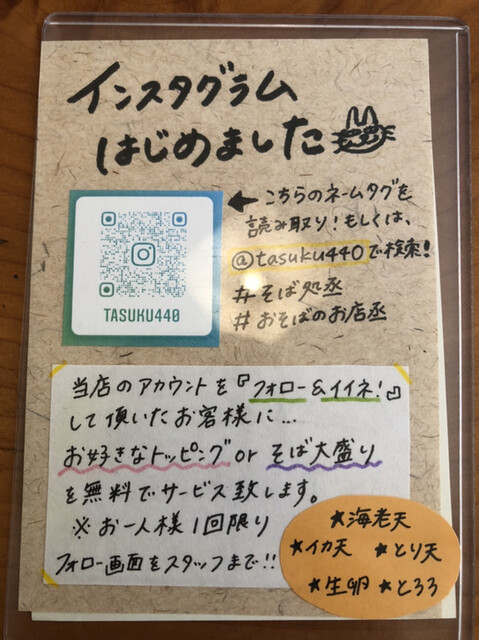 インスタグラム
はじめました
←こちらのネームタグを
読み取り!もしくは、
@tasuku440で検索!
#そば処丞
#おそばのお店丞
TASUKU440
当店のアカウントを『フォロー&イイネ!』
して頂いたお客様に...
お好きなトッピング or そば大盛り
を無料でサービス致します。
※お一人様1回限り
フォロー画面をスタッフまで!!
★海老天
★イカ天 ★とり天
★生卵 ★とろろ